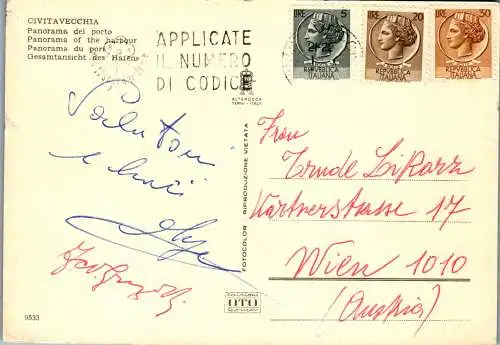 CIVITAVECCHIA
Panorama del porto
Panorama of the harbour
Panorama du port
Gesamtansicht des Hafens
APPLICATE
IL NUMERO
DI CODICE
LIRE 5
REPVBBLICA
ITALIANA
LIRE 20
REPVBBLICA
ITALIANA
LIRE 50
REPVBBLICA
ITALIANA
ALTEROCCA
TERNI - ITALY
Salutoni
e baci
FOTOCOLOR RIPRODUZIONE VIETATA
Frau
Trude
Kärtnerstrasse 17
Wien 1010
(Austria)
OTO
9533